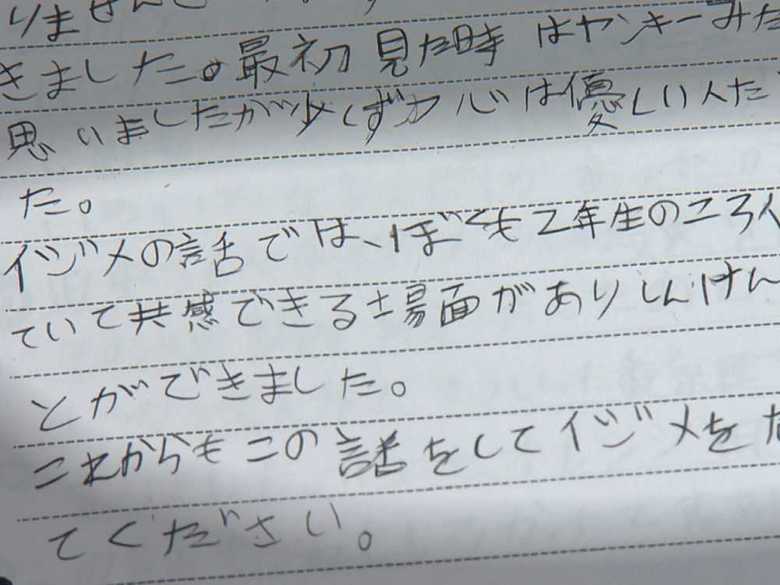 りません
きました。最初見た時はヤンキーみた
思いましたが少しずつ心は優しい人だ
た。
イジメの話では、ぼくも2年生のころイ
ていて共感できる場面がありしんけん
とができました。
これからもこの話をしてイジメをな
てください。